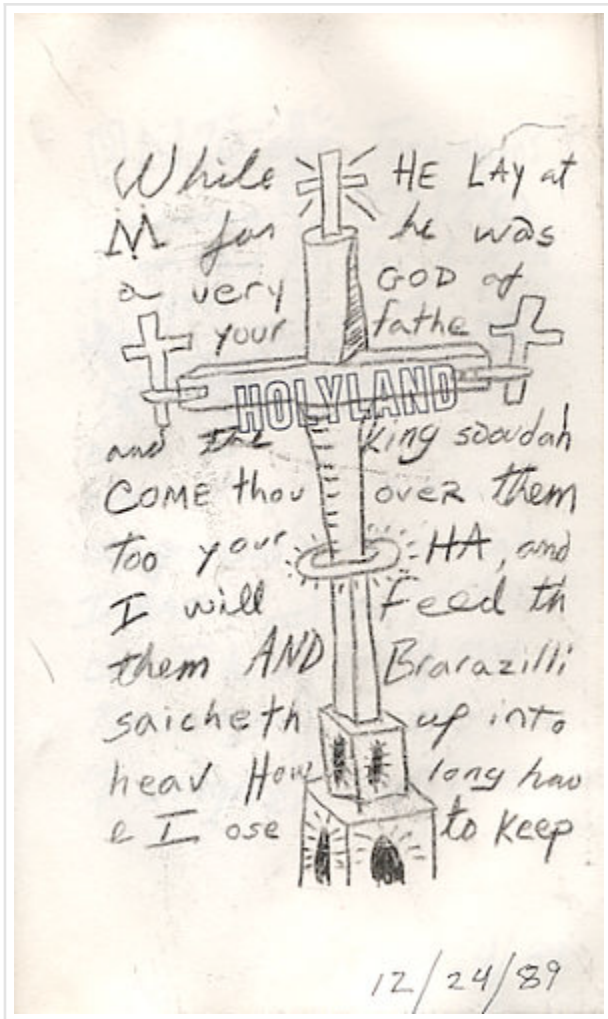 While HE LAY at
M for he was
a very GOD of
your fathe
HOLYLAND
and the king sooudah
COME thou over them
too your HA, and
I will Feed th
them AND Brarazilli
saicheth up into
heav How long hav
e I ose to keep
12/24/89